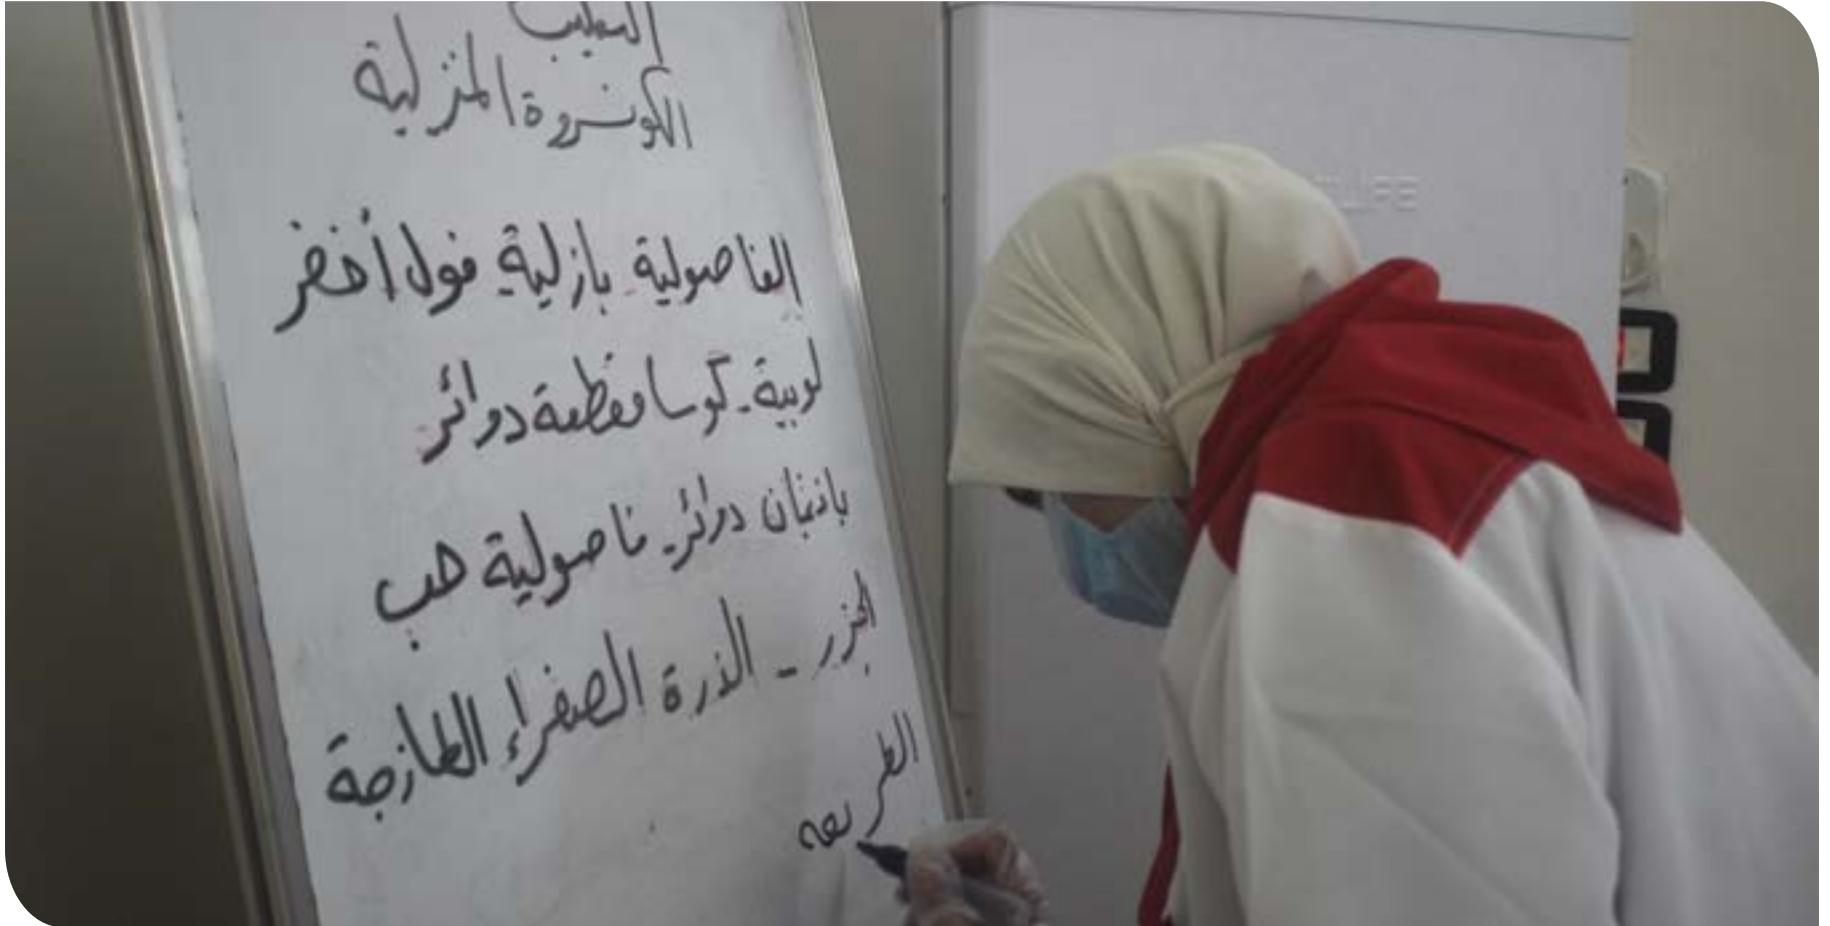 التعليب
الكونسروة المنزلية
الفاصولية بازلية فول أخضر
لوبية - كوسا مقطعة دوائر
باذنجان دوائر - فاصولية حب
الجزر - الذرة الصفراء الطازجة
الطريقه